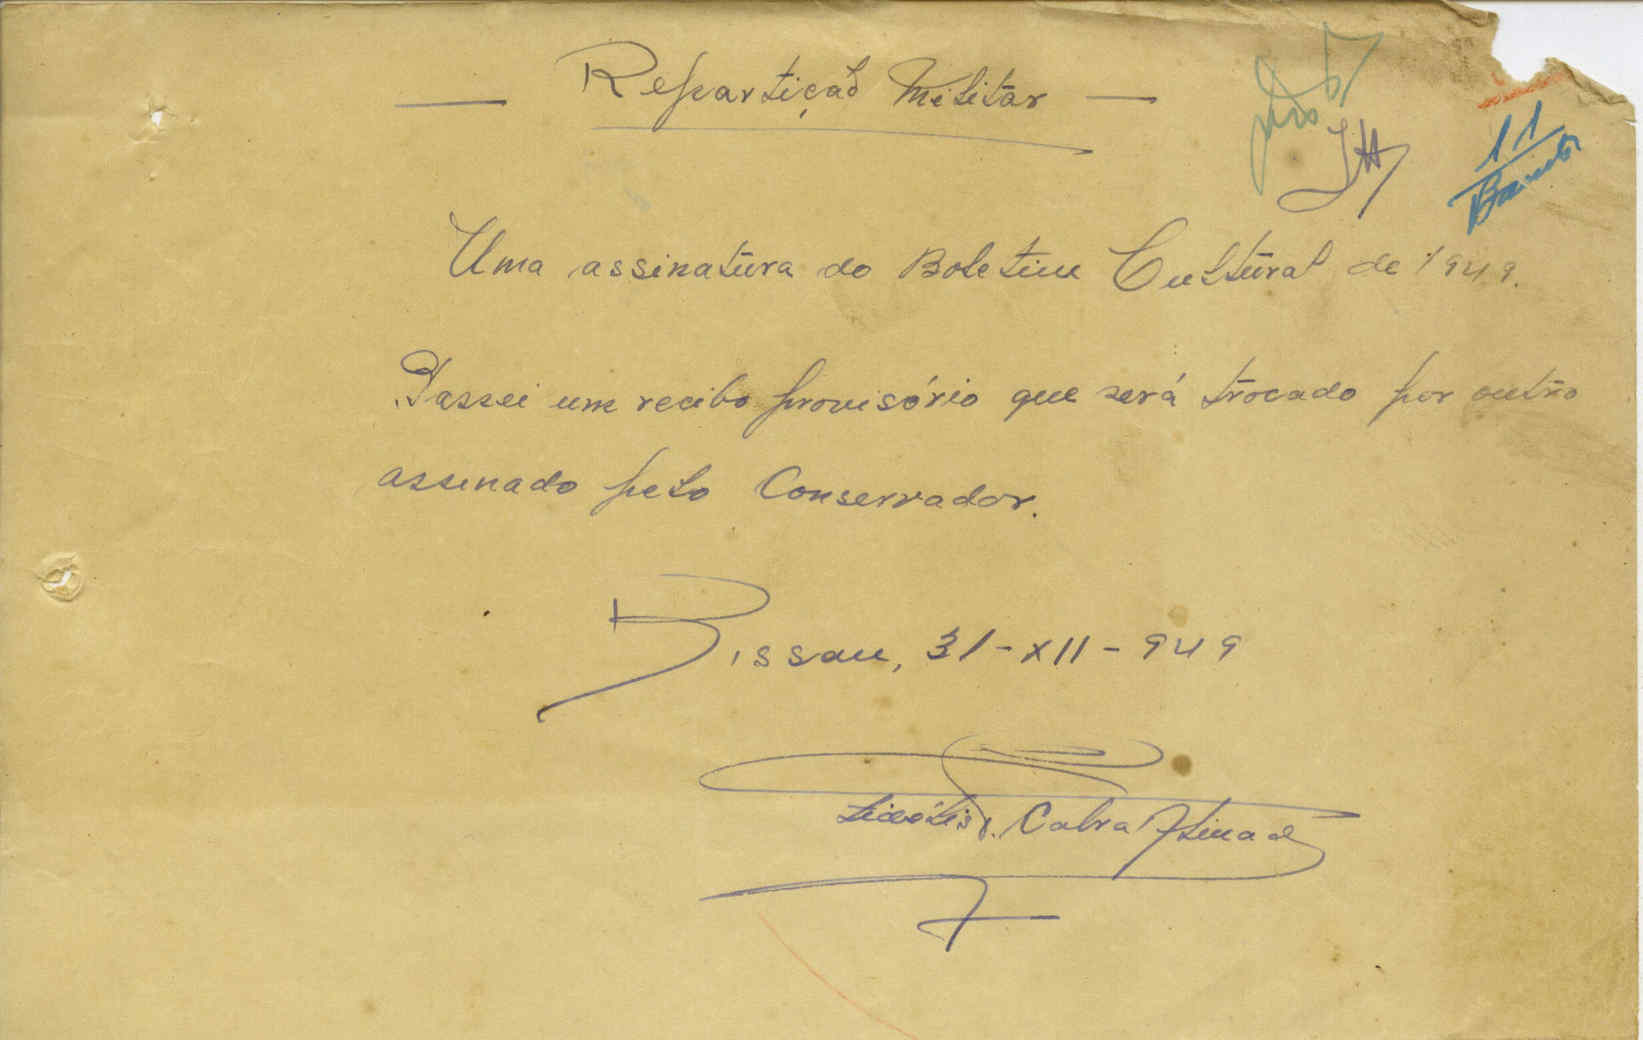 — Repartição Militar —
11
Uma assinatura do Boletim Cultural de 1949.
Passei um recibo provisório que será trocado por outro
assinado pelo Conservador.
Bissau, 31-XII-949
Cabral